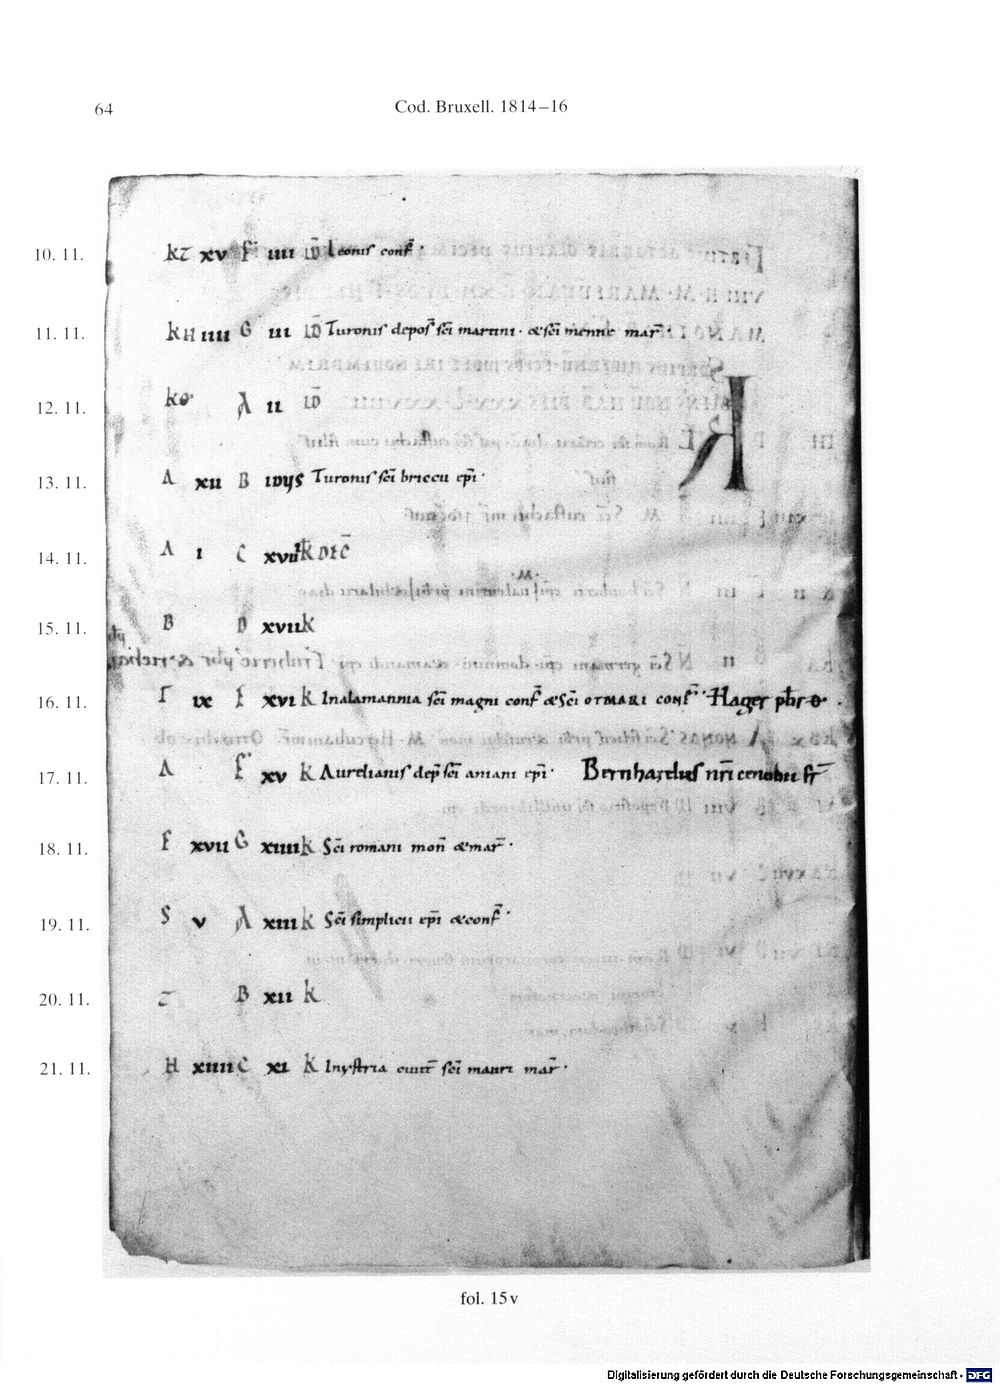 64
Cod. Bruxell. 1814–16
10. 11. kz xv F IIII ID Leonis conf̄ ·
11. 11. kH IIII G III ID Turonis depoſ̄ sc̄i martini · & sc̄i menne mar̄ ·
12. 11. A II ID
A
13. 11. A XII B IDVS Turonis sc̄i briccii ep̄i ·
14. 11. A I C XVIII k DEC̄
15. 11. B D XVII k
16. 11. IX E XVI k In alamannia sc̄i magni conf̄ & sc̄i OTMARI CONF̄ · Hager pb̄r
17. 11. A F XV k Aurelianis dep̄ sc̄i aniani ep̄i · Bernhardus nr̄i cenobii fr̄
18. 11. F XVII G XIIII k Sc̄i romani mon̄ & mar̄ ·
19. 11. S V A XIII k Sc̄i simplicii ep̄i & conf̄ ·
20. 11. B XII k
21. 11. H XIIII C XI k In ystria civit̄ sc̄i mauri mar̄ ·
fol. 15v
Digitalisierung gefördert durch die Deutsche Forschungsgemeinschaft - DFG